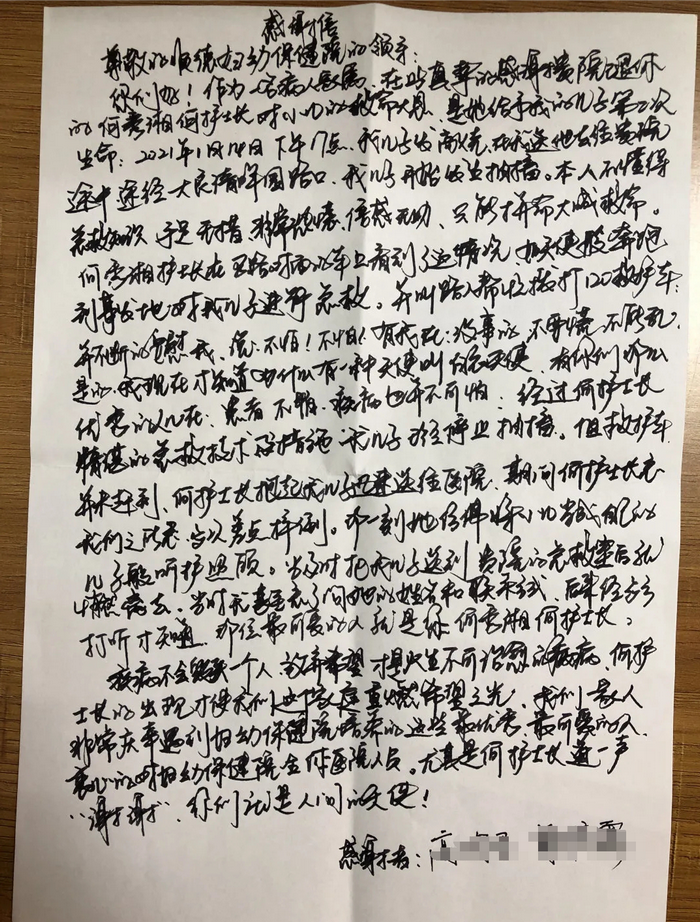 感谢信
尊敬的顺德妇幼保健院的领导:
你们好!作为一名病人家属,在此真挚的感谢贵院退休
的何秀湘何护士长对小儿的救命大恩,是她给予我的儿子第二次
生命:2021年1月14日下午17点,我儿子发高烧,在我送他去往贵院
途中途经大良隔岸围路口,我儿子开始发生抽搐。本人不懂得
急救知识,手足无措,非常恐慌,倍感无助,只能拼命大喊救命。
何秀湘护士长在马路对面的车上看到了这情况,如天使般奔跑
到事发地对我儿子进行急救。并叫路人帮忙拨打120救护车:
并不断的安慰我,说:不怕!不怕!有我在:没事的,不要慌,不能乱,
是的,我现在才知道为什么有一种天使叫白衣天使,有你们那么
优秀的人在:患者不怕,疾病也并不可怕,经过何护士长
精湛的急救技术及措施,我儿子终停止抽搐。但救护车
并未赶到,何护士长抱起我儿子迅速送往医院,期间何护士长急
我们之所急,多次差点摔倒。那一刻她仿佛将小儿当成自己的
儿子般呵护照顾。当及时把我儿子送到贵院的急救室后就
悄然离去,当时我甚至忘了问她的姓名和联系方式,后来经多方
打听才知道,那位最可爱的人就是你何秀湘何护士长。
疾病不会毁灭一个人,放弃希望才是人生不可治愈的疾病,何护
士长的出现才使我们这个家庭重燃希望之光,我们一家人
非常庆幸遇到妇幼保健院培养的这些最优秀、最可爱的人,
衷心的对妇幼保健院全体医院人员。尤其是何护士长道一声
“谢谢谢谢”,你们就是人间的天使!
感谢者:高